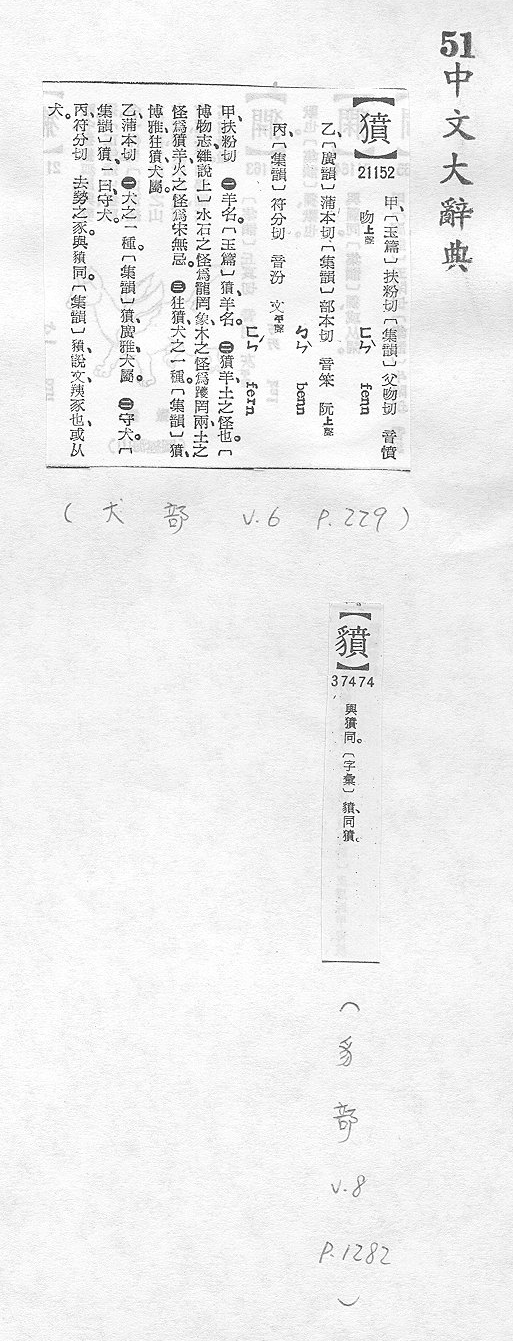 51中文大辭典
【獖】
21152
甲、〔玉篇〕扶粉切〔集韻〕父吻切 音憤
吻上聲 ㄈㄣˋ fenn
乙〔廣韻〕蒲本切〔集韻〕部本切 音笨 阮上聲
ㄅㄣˋ benn
丙、〔集韻〕符分切 音汾 文平聲
ㄈㄣˊ fern
甲、扶粉切 ㊀羊名。〔玉篇〕獖、羊名。 ㊁獖羊、土之怪也。〔
博物志、雜說上〕水石之怪爲龍罔象、木之怪爲躨罔兩、土之
怪爲獖羊、火之怪爲宋無忌。 ㊂狂獖、犬之一種。〔集韻〕獖、
博雅、狂獖、犬屬。
乙、蒲本切 ㊀犬之一種。〔集韻〕獖、廣雅、犬屬。 ㊁守犬。〔
集韻〕獖、一曰、守犬。
丙、符分切 去勢之豕。與豶同。〔集韻〕豶、說文、羠豕也、或从
犬。
(犬部 v.6 P.229)
【豶】
37474
與獖同。〔字彙〕豶、同獖。
(豸部 v.8 P.1282)